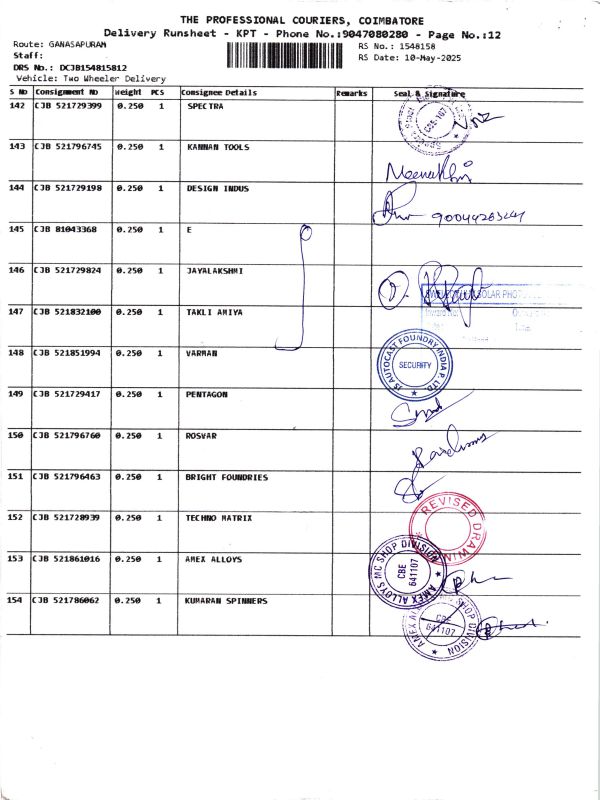 THE PROFESSIONAL COURIERS, COIMBATORE
Delivery Runsheet - KPT - Phone No.:9047080280 - Page No.:12
Route: GANASAPURAM
RS No.: 1548158
Staff:
RS Date: 10-May-2025
DRS No.: DCJB154815812
Vehicle: Two Wheeler Delivery
S No Consignment No Weight PCS Consignee Details Remarks Seal & Signature
142 CJB 521729399 0.250 1 SPECTRA
CBE-107
143 CJB 521796745 0.250 1 KANNAN TOOLS
Meenakshi
144 CJB 521729198 0.250 1 DESIGN INDUS
145 CJB 81043368 0.250 1 E
146 CJB 521729824 0.250 1 JAYALAKSHMI
SOLAR
147 CJB 521832100 0.250 1 TAKLI AMIYA
Inward No:
148 CJB 521851994 0.250 1 VARMAN
JS AUTOCAST FOUNDRY INDIA P. LTD.
SECURITY
149 CJB 521729417 0.250 1 PENTAGON
150 CJB 521796760 0.250 1 ROSVAR
151 CJB 521796463 0.250 1 BRIGHT FOUNDRIES
152 CJB 521728939 0.250 1 TECHNO MATRIX
REVISED DRAWING
153 CJB 521861016 0.250 1 AMEX ALLOYS
AMEX ALLOYS MC SHOP DIVISION
CBE
641107
154 CJB 521786062 0.250 1 KUMARAN SPINNERS
AMEX ALLOYS MC SHOP DIVISION
CBE
641107